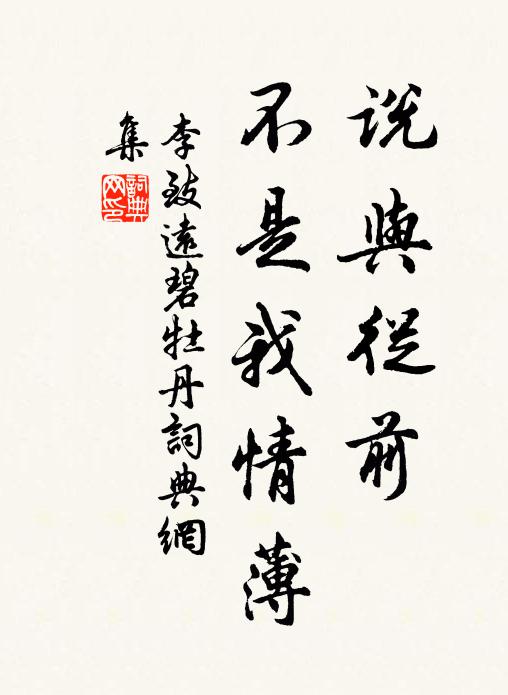 說與從前
不是我情薄
李致遠碧牡丹詞典網
集
詞典
网印